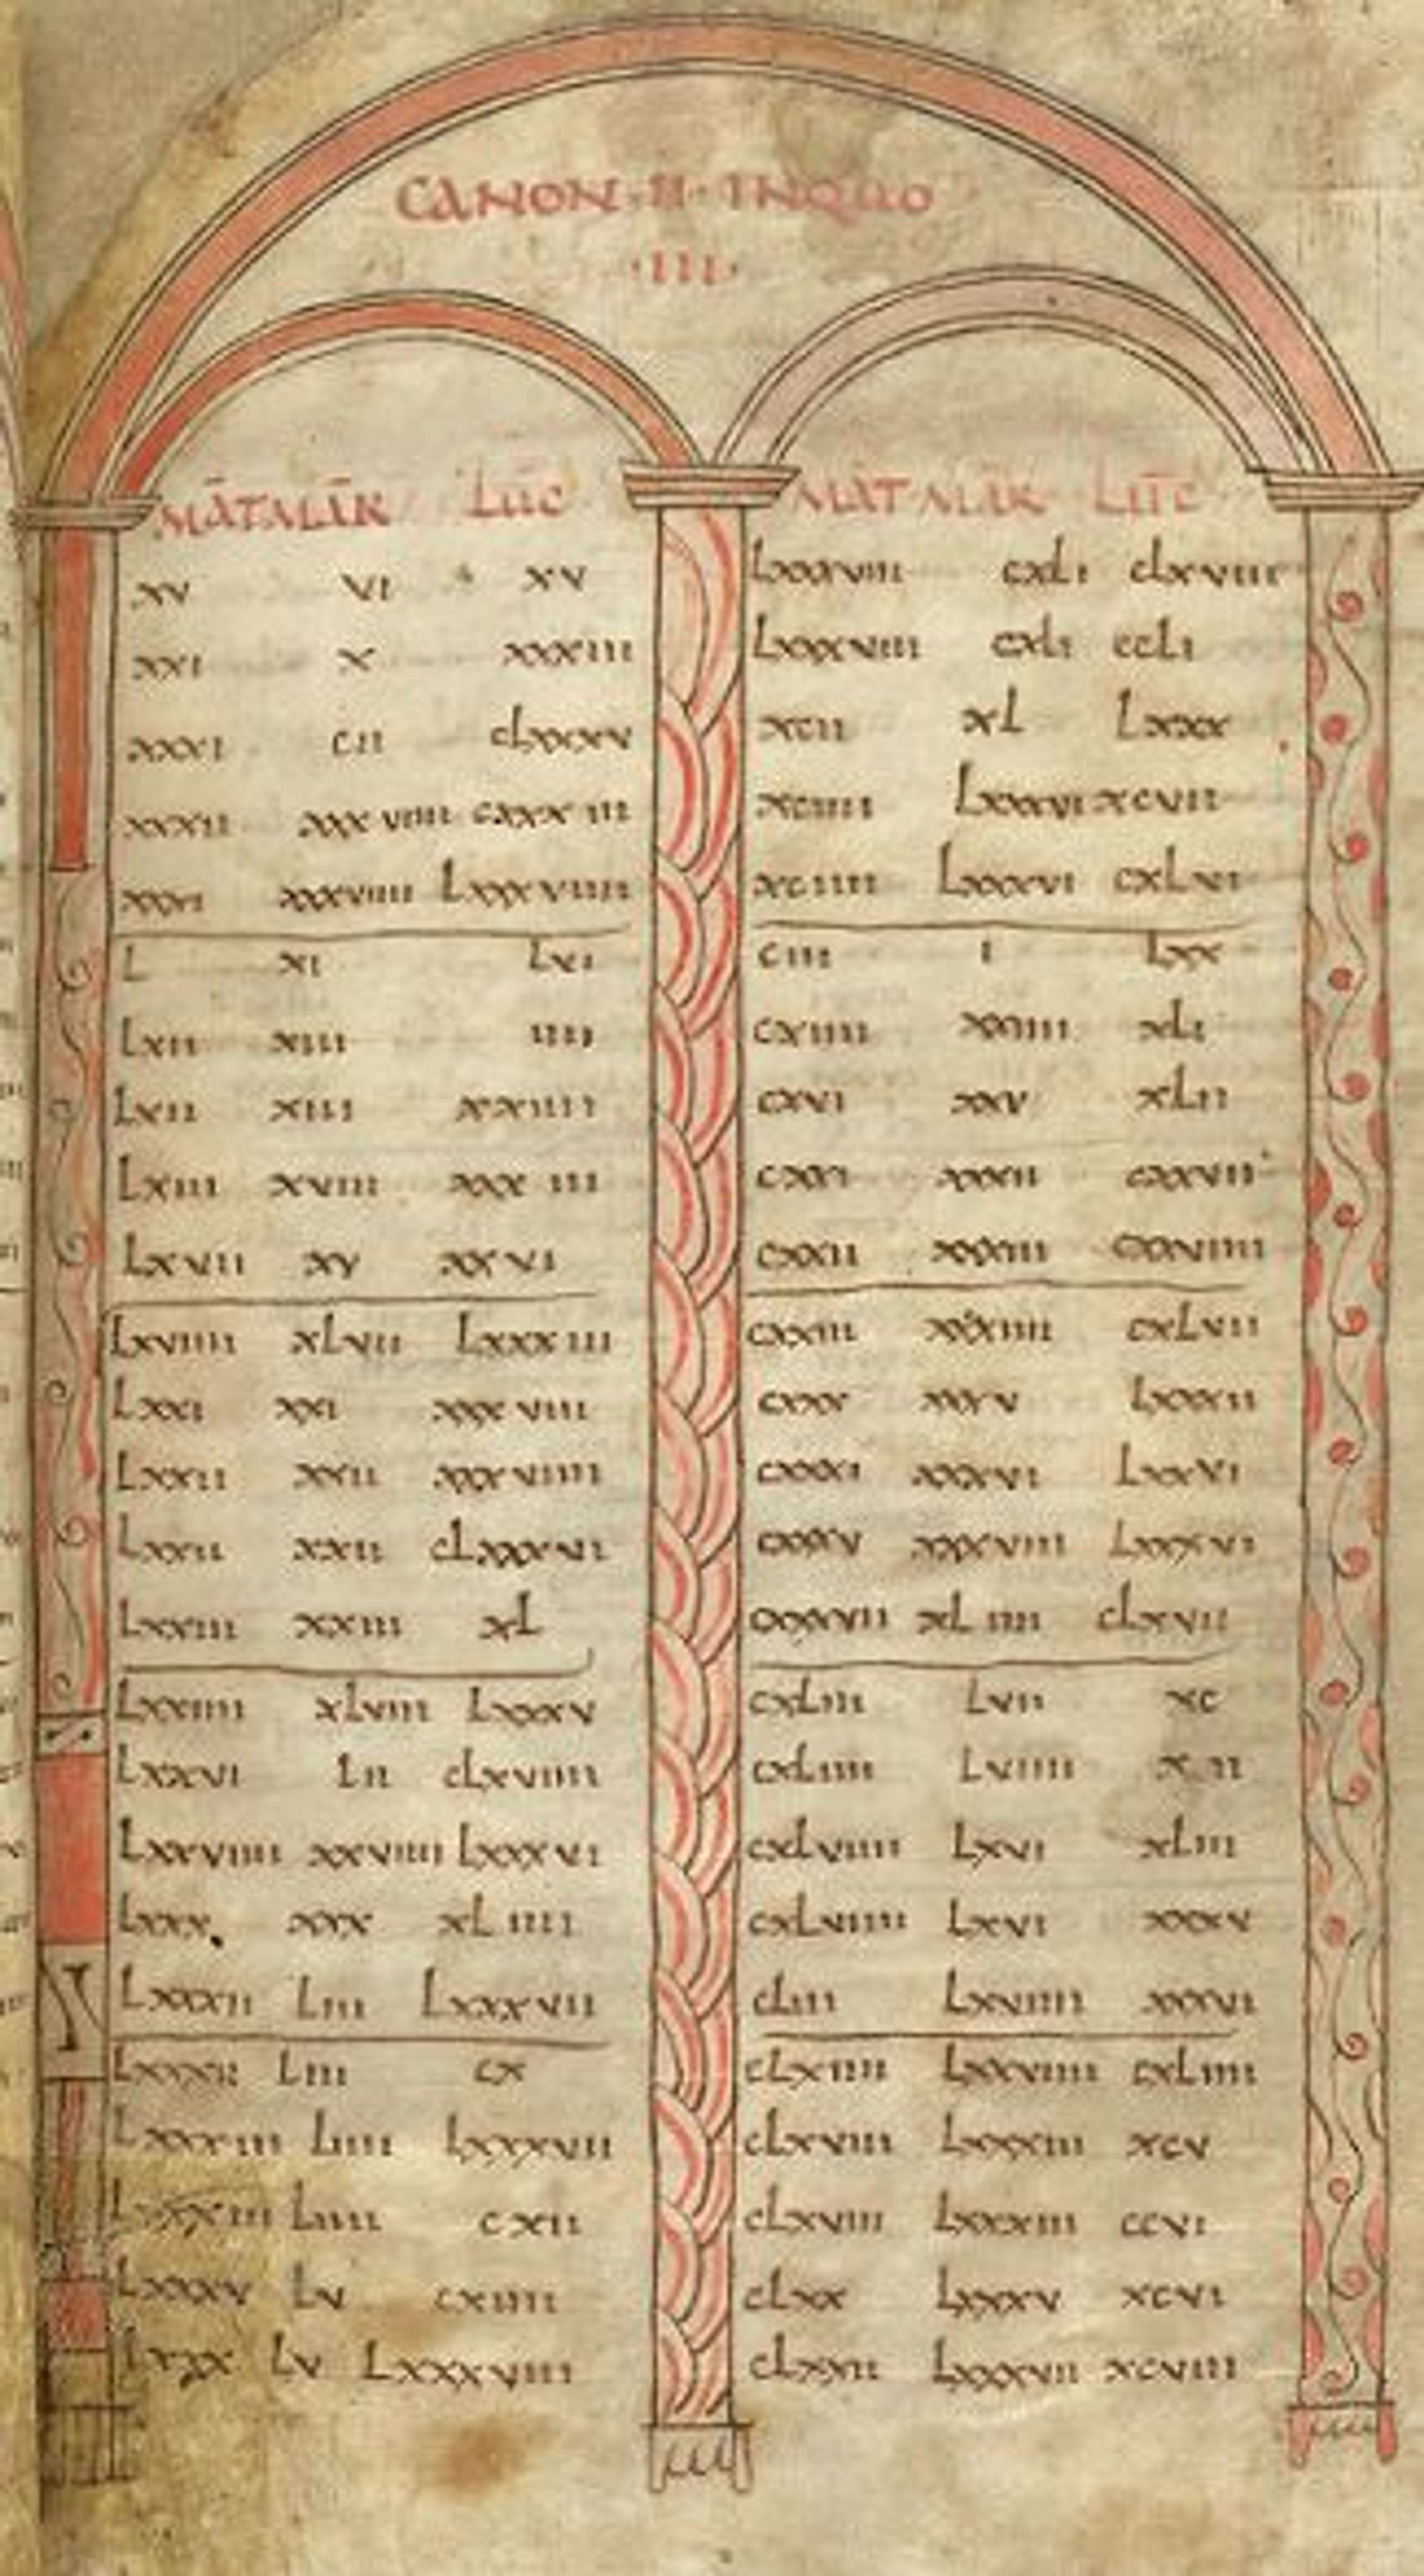 CANON · II · INQUO
· III ·
MAT MAR LUC
xv vi xv
xxi x xxxiii
xxxi cii clxxxv
xxxii xxxviiii cxxxiii
xxxvi xxxviiii Lxxxviiii
L xi Lvi
Lxii xiii iiii
Lxii xiii xxiiii
Lxiii xviii xxxiii
Lxvii xv xxvi
Lxviiii xLvii Lxxxiii
Lxxi xxi xxxviii
Lxxii xxii xxxviiii
Lxxii xxii cLxxxvi
Lxxiii xxiii xL
Lxxiiii xLviii Lxxxv
Lxxvi Lii cLxviiii
Lxxviiii xxviiii Lxxxvi
Lxxx xxx xLiiii
Lxxxii Liii Lxxxvii
Lxxxii Liii cx
Lxxxiii Liiii Lxxxvii
Lxxxiii Liiii cxii
Lxxxv Lv cxiiii
Lv Lxxxviii
MAT MAR LUC
Lxxxviii cxLi cLxviii
Lxxxviii cxLi ccLi
xcii xL Lxxx
xciiii Lxxxvi xcvii
xciiii Lxxxvi cxLvi
ciii i Lxx
cxiiii xxiiii xLi
cxvi xxv xLii
cxxi xxxii cxxvii
cxxii xxxiii cxxviiii
cxxiii xxxiiii cxLvii
cxxx xxxv Lxxxii
cxxxi xxxvi Lxxvi
cxxxv xxxviii Lxxxvi
cxxxvii xLiiii cLxvii
cxLiii Lvii xc
cxLiiii Lviiii
cxLviiii Lxvi xLiii
cxLviiii Lxvi xxxv
cLiii Lxviiii xxxvi
cLxiiii Lxxviiii cxLiiii
cLxviii Lxxxiii xcv
cLxviii Lxxxiii ccvi
cLxx Lxxxv xcvi
cLxxii Lxxxvii xcviii